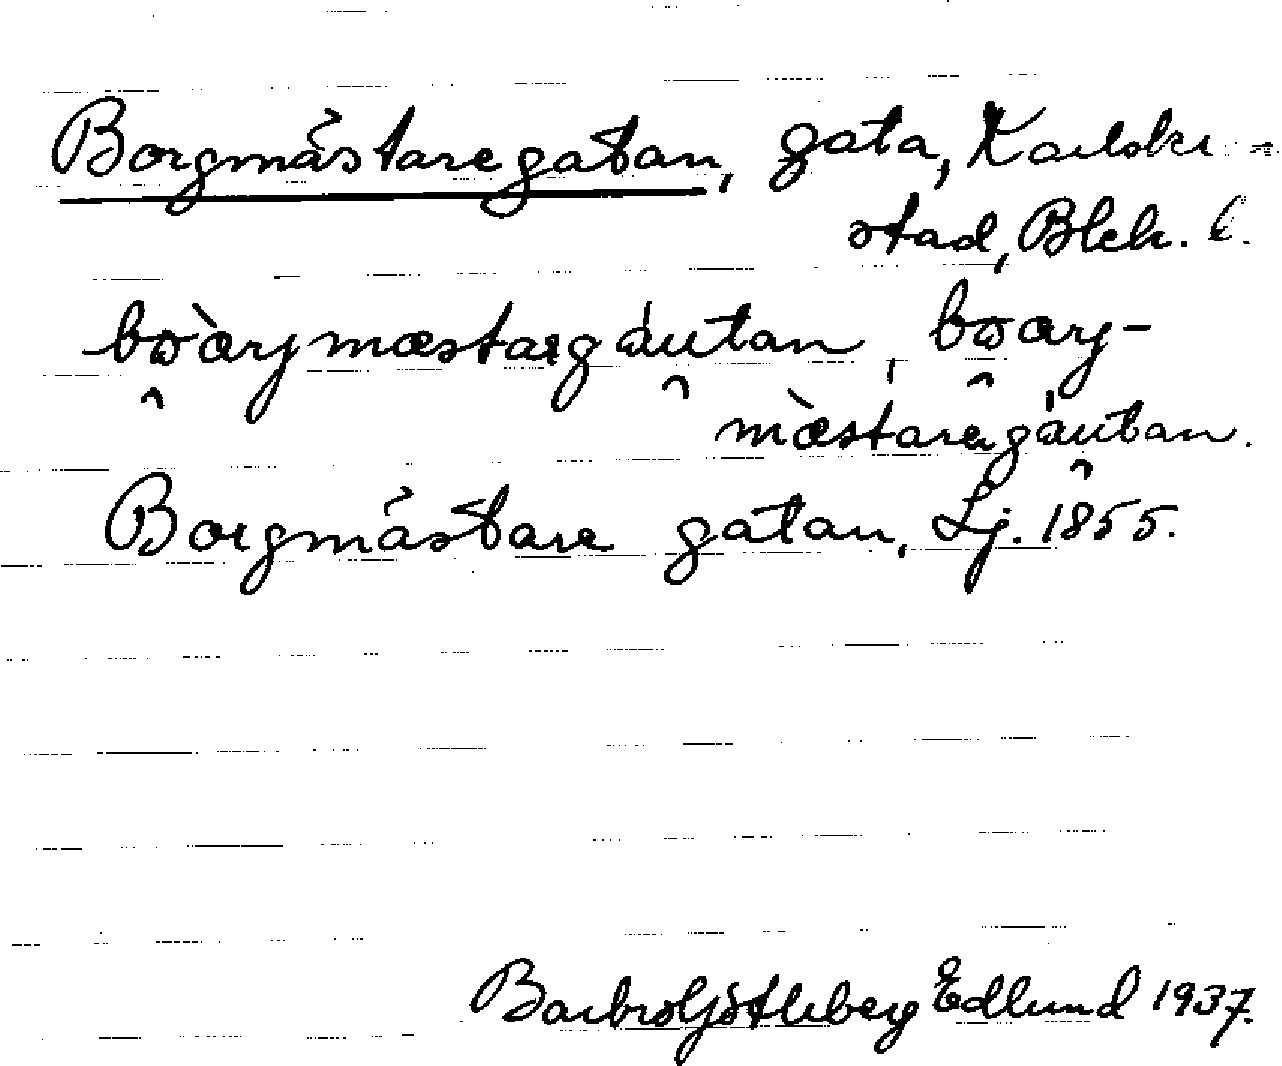 Borgmästaregatan, gata, Karlskr-
stad, Blek. l.
bwàrgmæstargáutan, bwarg-
mæ̀staregáutan.
Borgmästare gatan, Lj. 1855.
Barbro Götleberg Edlund 1937.